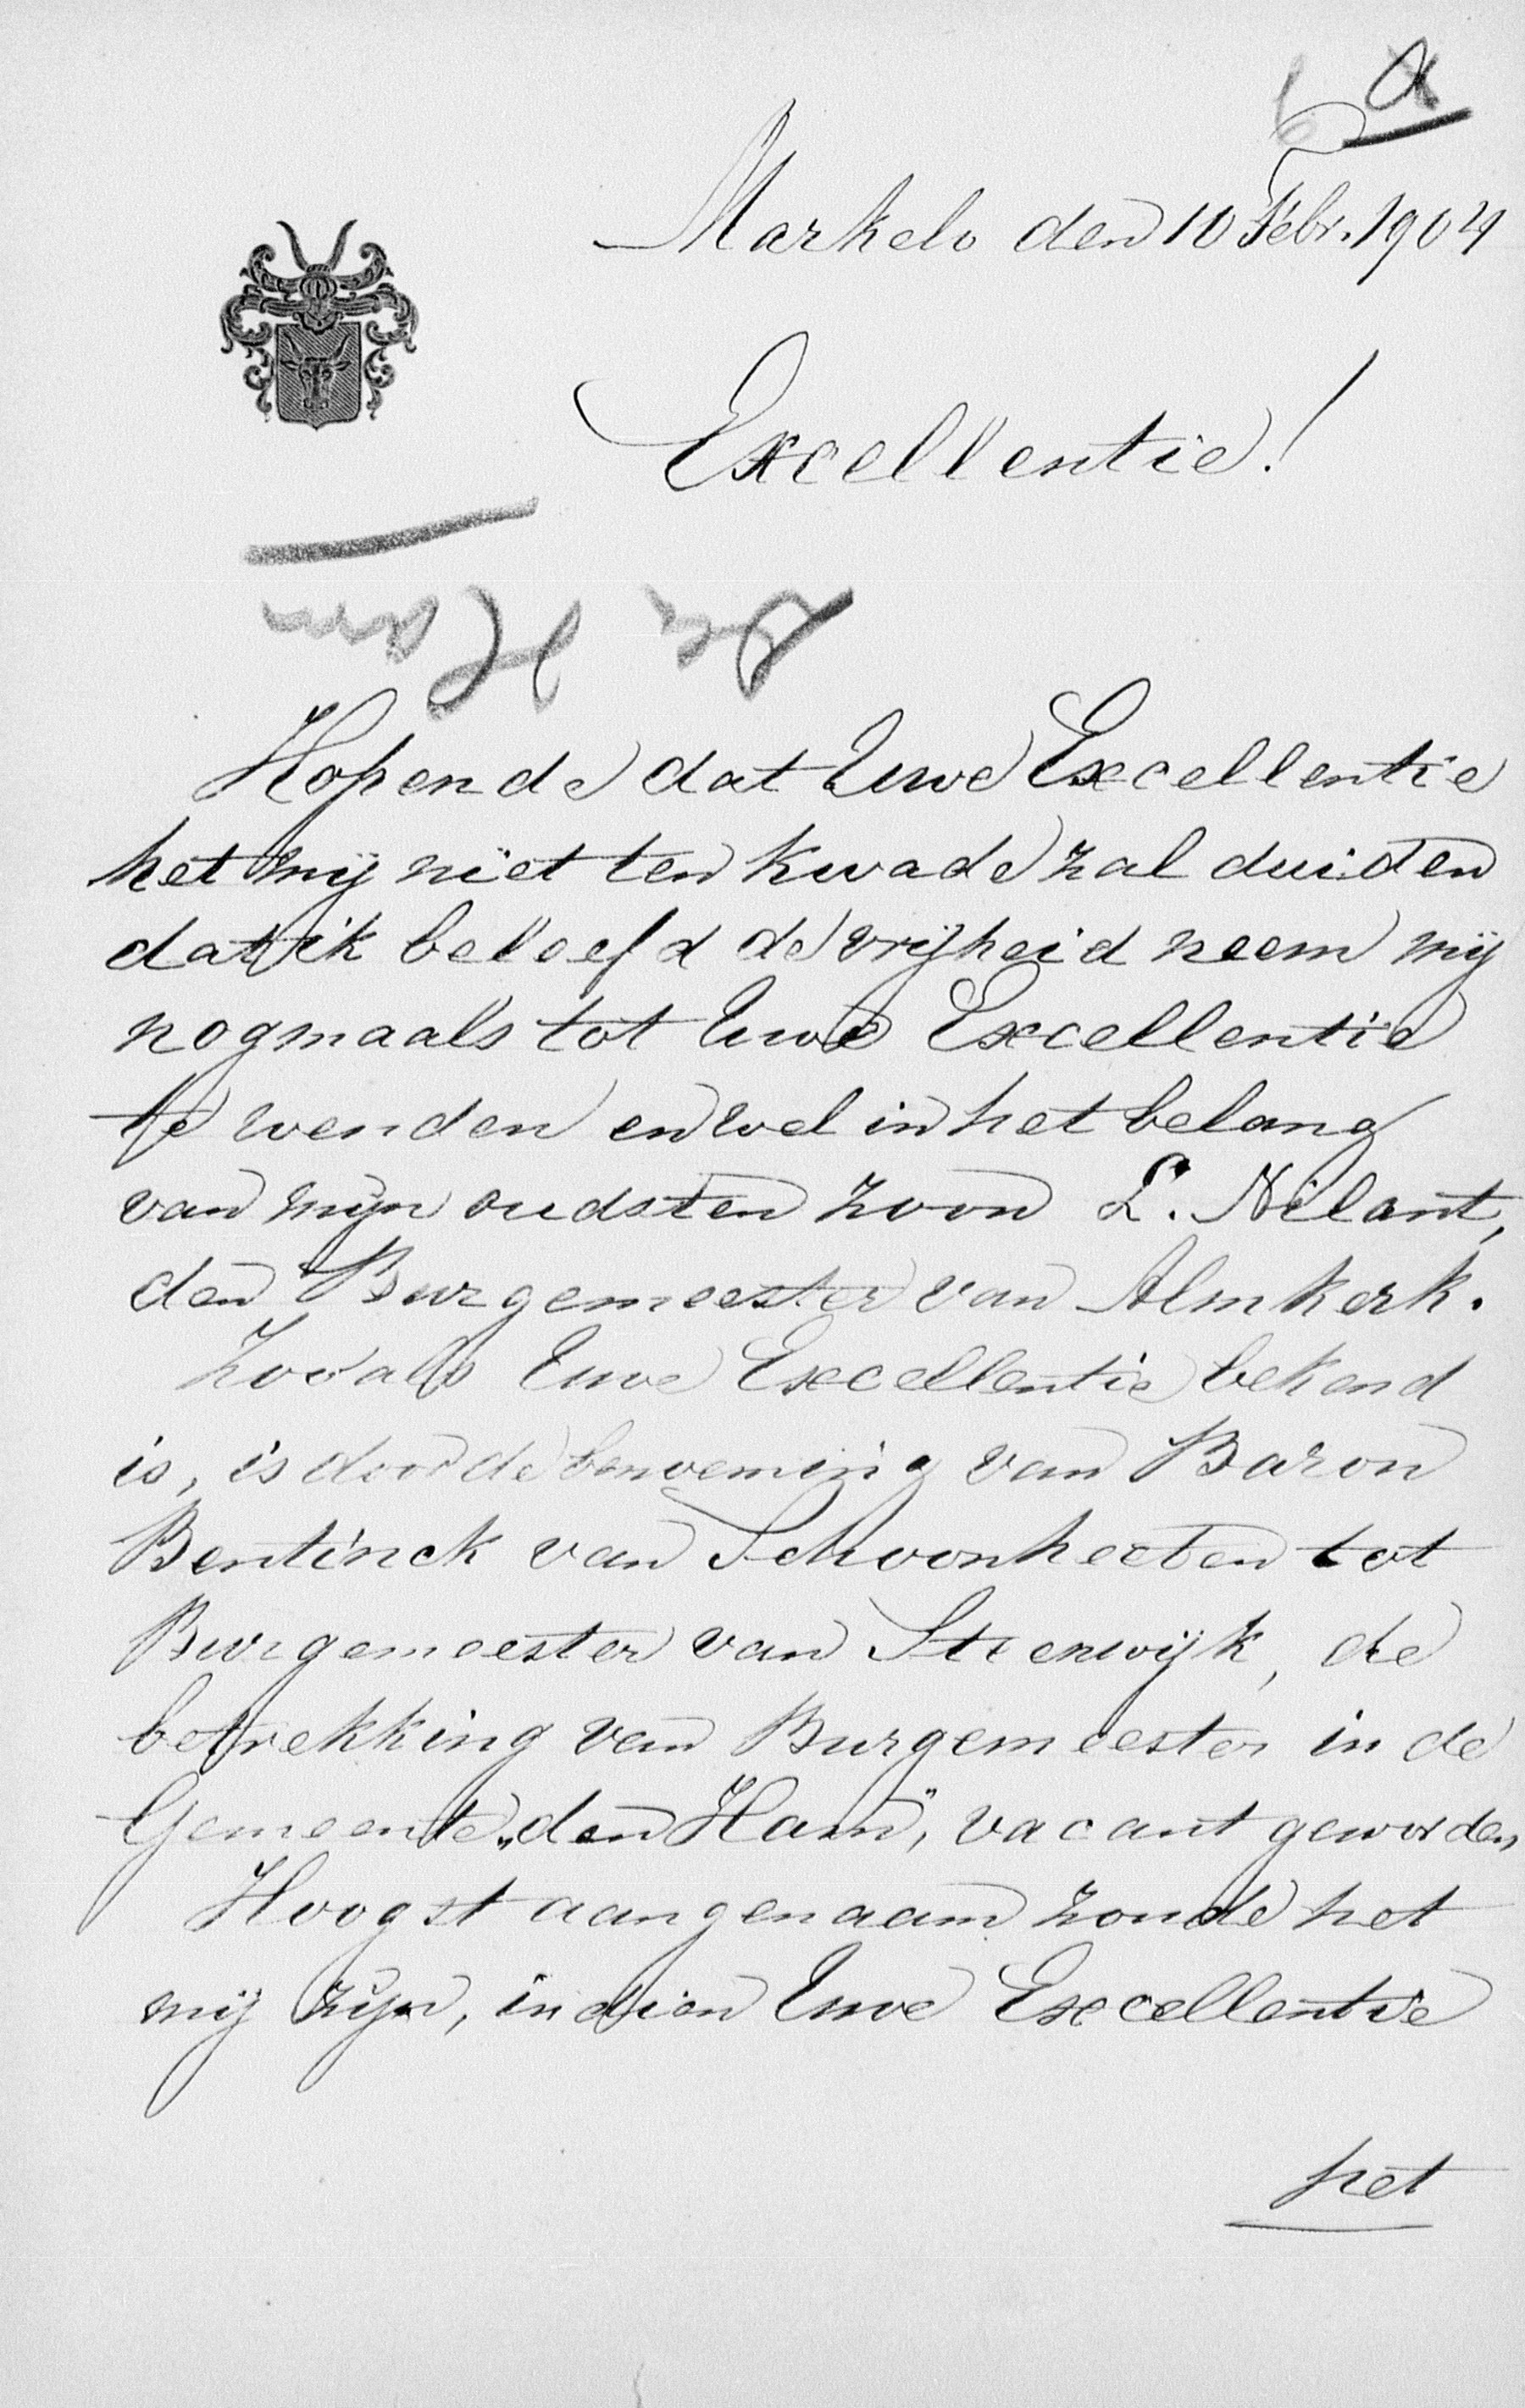 a
Markelo den 10 Febr. 1904
Excellentie!
den Ham
Hopende dat Uwe Excellentie
het mij niet ten kwade zal duiden
dat ik beleefd de vrijheid neem mij
nogmaals tot Uwe Excellentie
te wenden en wel in het belang
van mijn oudsten zoon L. Nilant,
den Burgemeester van Almkerk.
Zooals Uwe Excellentie bekend
is, is door de benoeming van Baron
Bentinck van Schoonheeten tot
Burgemeester van Steenwijk, de
betrekking van Burgemeester in de
Gemeente „den Ham", vacant geworden
Hoogst aangenaam zoude het
mij zijn, indien Uwe Excellentie
het